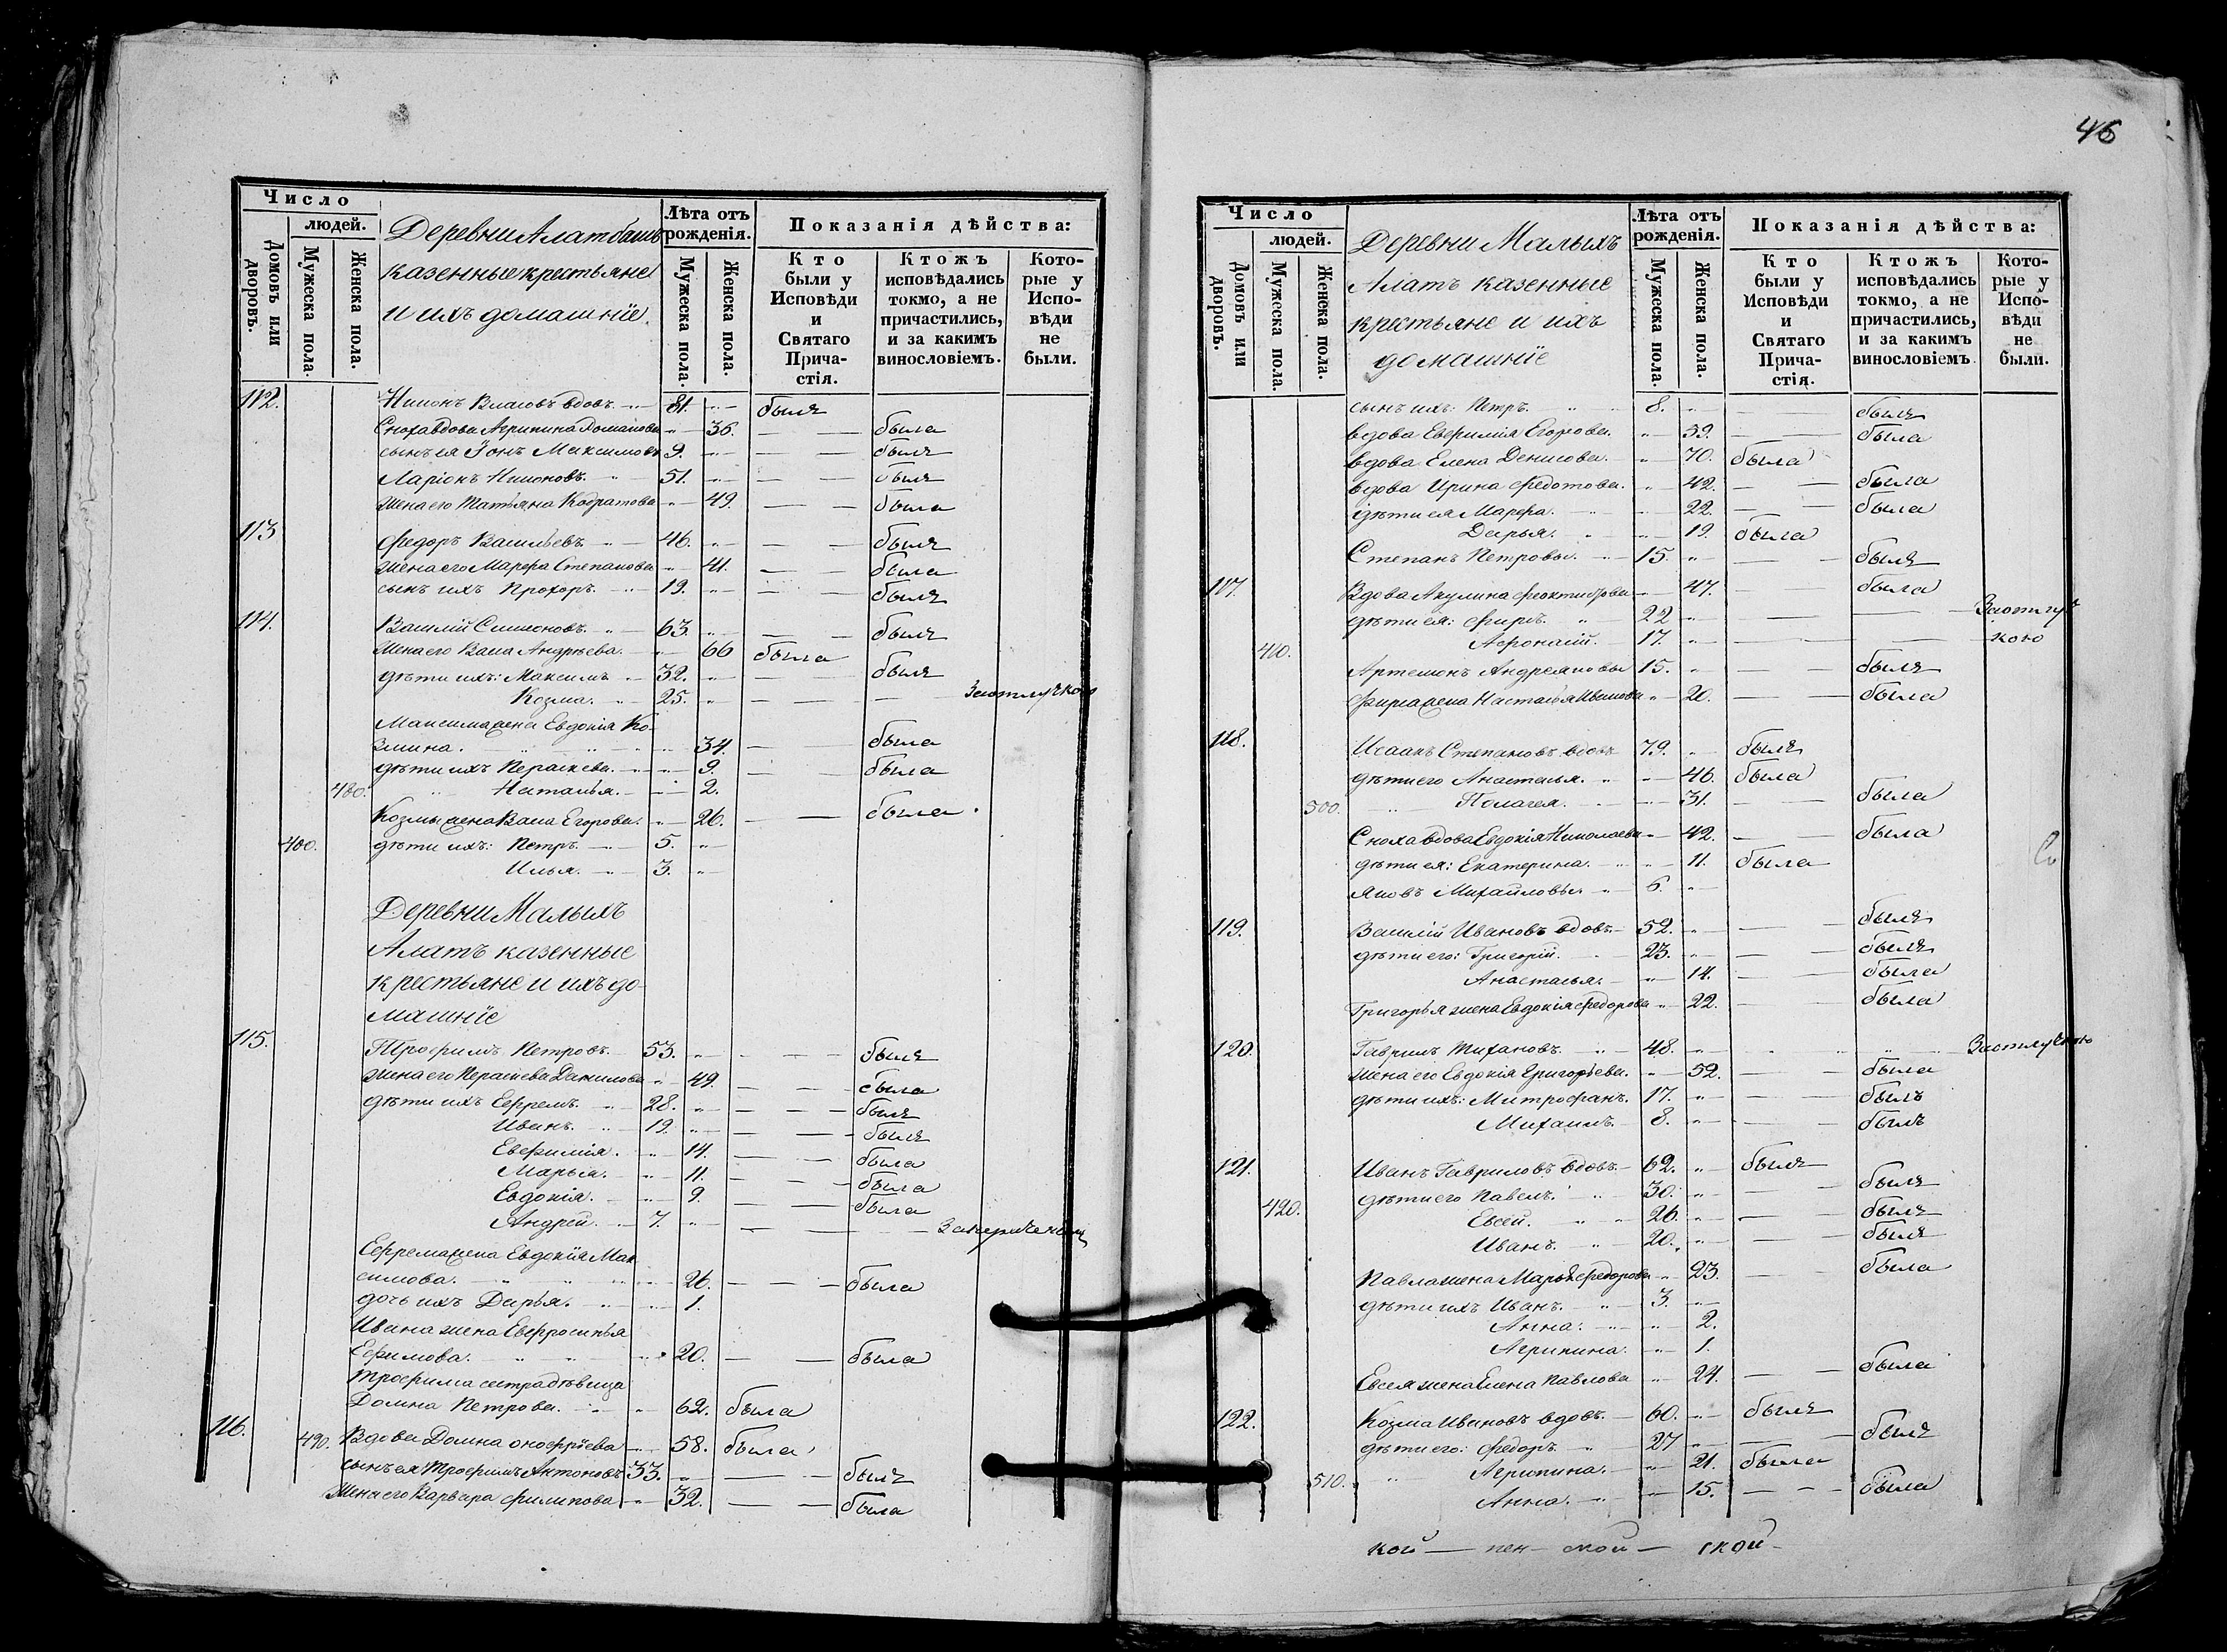 46
Число
людей.
Домовъ или дворовъ.
Мужеска пола.
Женска пола.
Деревни Алатбашъ
казенные крестьяне
и ихъ домашніе.
Лѣта отъ рожденія.
Мужеска пола.
Женска пола.
Показанія дѣйства:
Кто были у Исповѣди и Святаго Прича-стія.
Ктожъ исповѣдались токмо, а не причастились, и за какимъ винословіемъ.
Кото-рые у Испо-вѣди не были.
112. Власовъ вдовъ. 81. былъ
Сноха вдова Агрипина Романова 36. была
сынъ ея Іонъ Максимовъ 9. былъ
Ларіонъ 51. былъ
жена его Татьяна Кодратова 49. была
113 Федоръ Васильевъ. 46. былъ
жена его Марфа Степанова 41. была
сынъ ихъ Прохоръ. 19. былъ
114. Василій Симеоновъ. 63. былъ
жена его Васа Андрѣева. 66 была
дѣти ихъ: Максимъ 32. былъ
Козма. 25. За отлучкою
Максима жена Евдокія Ко-
змина. 34. была
дѣти ихъ Пераскева. 9. была
480. Наталья. 2.
Козмы жена Васа Егорова. 26. была
400. дѣти ихъ: Петръ. 5.
Илья. 3.
Деревни Малыхъ
Алатъ казенные
крестьяне и ихъ до-
машніе
115. Трофимъ Петровъ. 53. былъ
жена его Пераскева Данилова 49. была
дѣти ихъ Ефремъ. 28. былъ
Иванъ. 19. былъ
Евфимія. 14. была
Марья. 11. была
Евдокія. 9. была
Андрей. 7.
Ефрема жена Евдокія Мак-
симова. 26. была
дочь ихъ Дарья. 1.
Ивана жена Евфросинья
Ефимова. 20. была
Трофима сестра дѣвица
Домна Петрова. 62. была
116. 490. Вдова Домна Онофрѣева 58. была
сынъ ея Трофимъ Антоновъ 33. былъ
жена его Варвара Филипова 32. была
Число
людей.
Домовъ или дворовъ.
Мужеска пола.
Женска пола.
Деревни Малыхъ
Алатъ казенные
крестьяне и ихъ
домашніе
Лѣта отъ рожденія.
Мужеска пола.
Женска пола.
Показанія дѣйства:
Кто были у Исповѣди и Святаго Прича-стія.
Ктожъ исповѣдались токмо, а не причастились, и за какимъ винословіемъ.
Кото-рые у Испо-вѣди не были.
сынъ ихъ: Петръ. 8. былъ
вдова Евфимія Егорова. 59. была
вдова Елена Денисова. 70. была
вдова Ирина Федотова. 42. была
дѣти ея Марфа. 22. была
Дарья. 19. была
Степанъ Петровы. 15. былъ
117. Вдова Акулина Феоктистова 47. была
дѣти ея: Фирсъ. 22 За отлуч
410. Афонасій. 17. кою
Артемонъ Андреяновы 15. былъ
Фирса жена Настасья Иванова 20. была
118. Исаакъ Степановъ вдовъ 79. былъ
дѣти его Анастасья. 46. была
500. Полагея. 31. была
Сноха вдова Евдокія Николаева 42. была
дѣти ея: Екатерина. 11. была
Яковъ Михайловы. 6.
119. Василій Ивановъ вдовъ. 52. былъ
дѣти его: Григорій. 23. былъ
Анастасья. 14. была
Григорья жена Евдокія Федорова 22. была
120. Гаврилъ Тихановъ. 48. За отлучкою
жена его Евдокія Григорьева. 52. была
дѣти ихъ: Митрофанъ. 17. былъ
Михаилъ. 8. былъ
121. Иванъ Гавриловъ вдовъ. 62. былъ
дѣти его Павелъ. 30. былъ
420. Евсей. 26. былъ
Иванъ. 20. былъ
Павла жена Марья Федорова 23. была
дѣти ихъ Иванъ. 3.
Анна. 2.
Агрипина. 1.
Евсея жена Елена Павлова 24. была
122. Козма Ивановъ вдовъ. 60. былъ
дѣти его: Федоръ. 27 былъ
Агрипина. 21. была
510. Анна. 15. была
кой — пен — ской